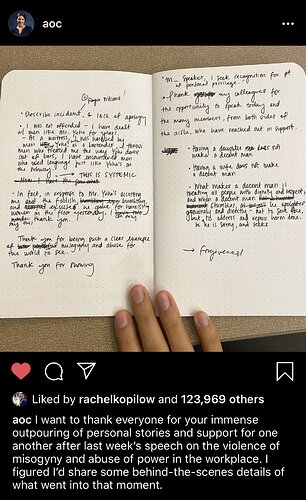 aoc
Roger Williams
• Describe incident, & lack of apology
- I was not offended - I have dealt
w/ men like Mr. Yoho for years.
- As a waitress, I was harassed by
men like Yoho. As a bartender, I threw
men who treated me the way Yoho does
out of bars, I have encountered men
who used language just like Yoho's on
the subway.
THIS IS SYSTEMIC
- In fact, in response to Mr. Yoho's accosting
me and the foolish,
and excuses he gave for
women on the floor yesterday, I
thank you
Thank you for being such a clear example
of misogyny and abuse for
the world to see.
Thank you for
"M_ Speaker, I seek recognition for pt
of personal privilege."
- Thank my colleagues for
the opportunity to speak today and
the many members, from both sides of
the aisle, who have reached out in support
- Having a daughter does not
make a decent man
- Having a wife does not make
a decent man
- What makes a decent man is
treating all people with dignity and respect,
and when a decent man
he apologizes
genuinely and directly - not to save face,
but to address and repair harm done.
He is sorry, and
→ Forgiveness
Liked by rachelkopilow and 123,969 others
aoc I want to thank everyone for your immense
outpouring of personal stories and support for one
another after last week's speech on the violence of
misogyny and abuse of power in the workplace. I
figured I'd share some behind-the-scenes details of
what went into that moment.